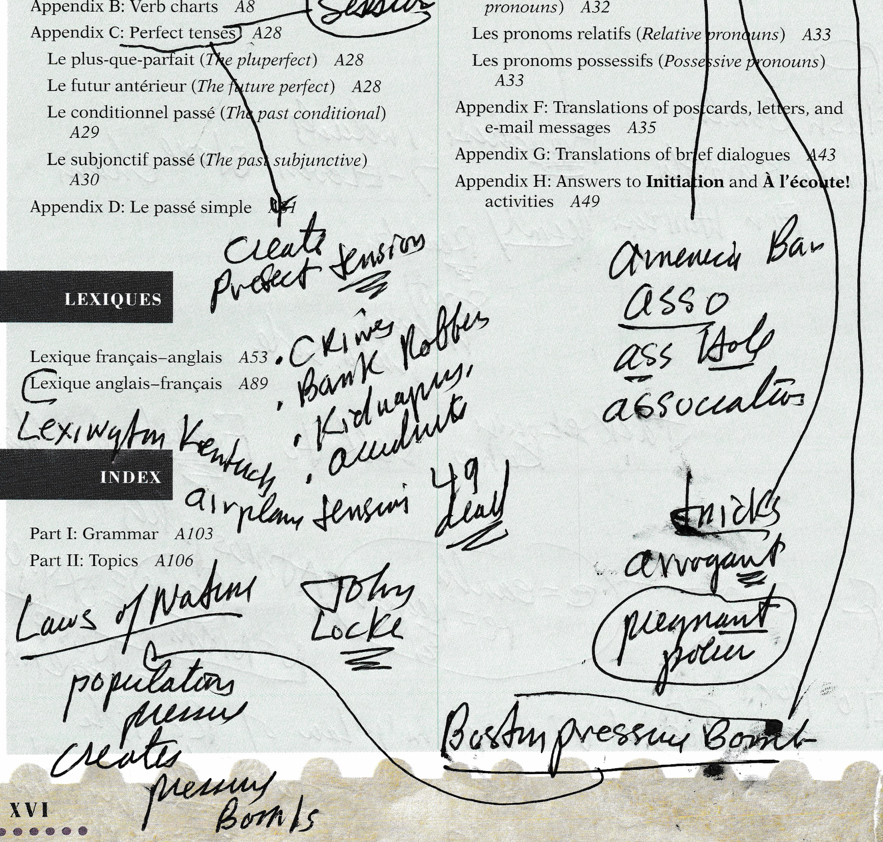 Appendix B: Verb charts A8
Session
Appendix C: Perfect tenses A28
Le plus-que-parfait (The pluperfect) A28
Le futur antérieur (The future perfect) A28
Le conditionnel passé (The past conditional)
A29
Le subjonctif passé (The past subjunctive)
A30
Appendix D: Le passé simple
create
prefect tension
LEXIQUES
Lexique français–anglais A53
Lexique anglais–français A89
• Crimes
• Bank Robber
• Kidnapping
• accidents
Lexington Kentuck
airplane tension 49
dead
INDEX
Part I: Grammar A103
Part II: Topics A106
Laws of Nature
John
Locke
population
pressure
creates
pressure
Bombs
XVI
pronouns) A32
Les pronoms relatifs (Relative pronouns) A33
Les pronoms possessifs (Possessive pronouns)
A33
Appendix F: Translations of postcards, letters, and
e-mail messages A35
Appendix G: Translations of brief dialogues A43
Appendix H: Answers to Initiation and À l'écoute!
activities A49
America Bar
asso
ass Hole
association
tricks
arrogant
pregnant
power
Boston pressure Bomb